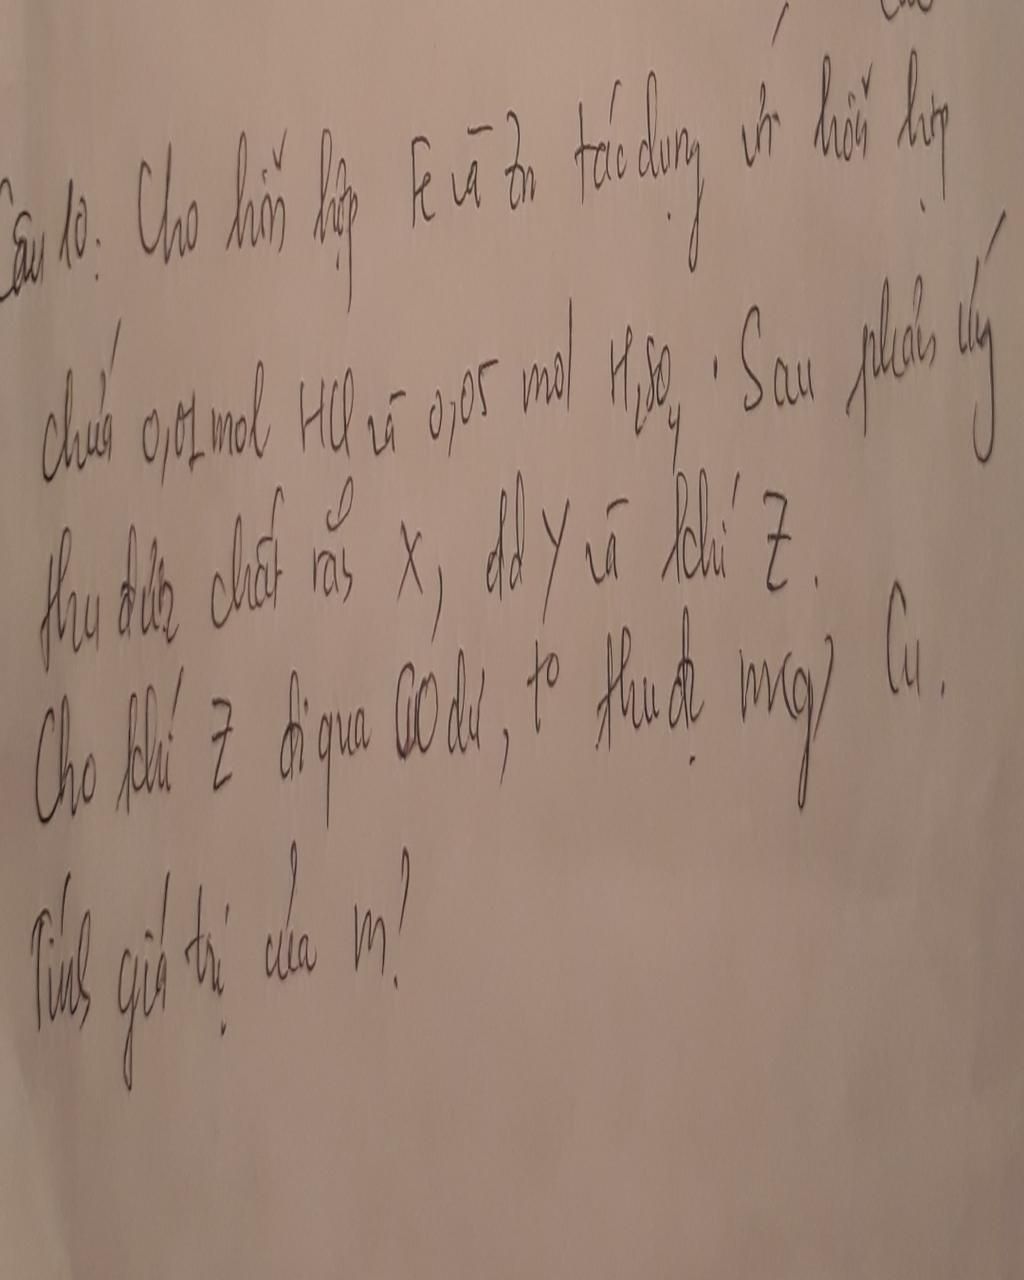 Câu 10: Cho hỗn hợp Fe và Zn tác dụng với hỗn hợp
chứa 0,01 mol HCl và 0,05 mol H₂SO₄. Sau phản ứng
thu được chất rắn X, dd Y và khí Z.
Cho khí Z đi qua CuO dư, t° thu đc m(g) Cu.
Tính giá trị của m?